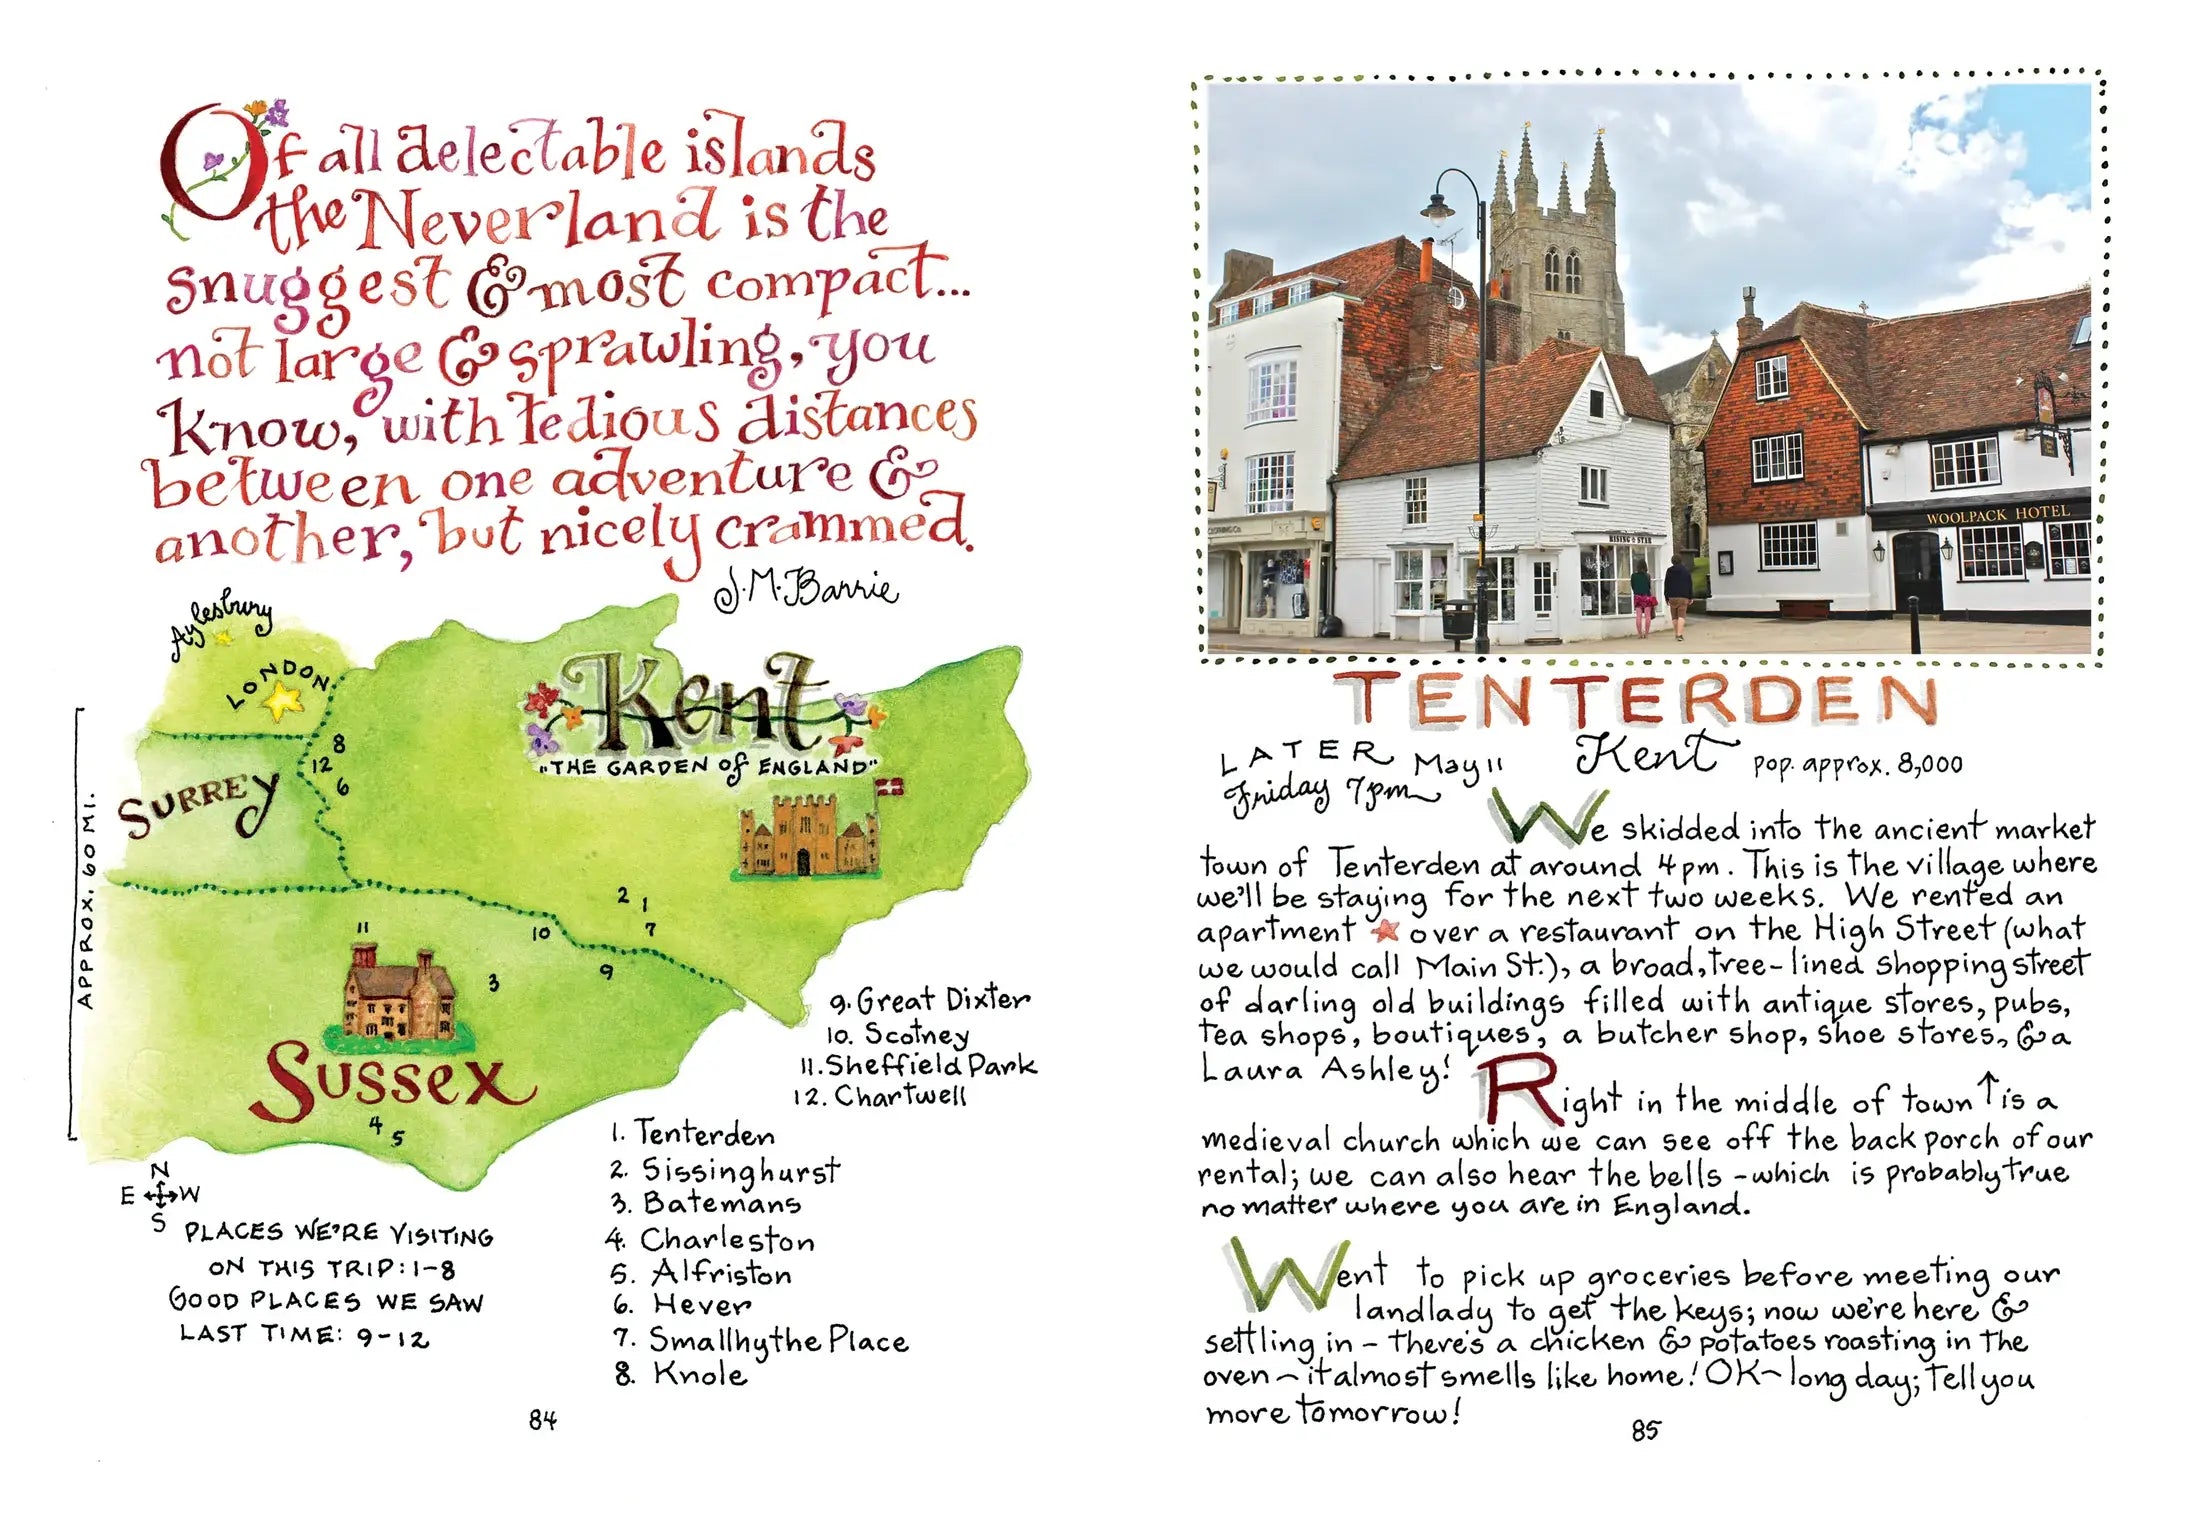 Of all delectable islands
the Neverland is the
snuggest & most compact...
not large & sprawling, you
know, with tedious distances
between one adventure &
another, but nicely crammed.
J.M. Barrie
Aylesbury
LONDON
Kent
"THE GARDEN of ENGLAND"
8
12
6
SURREY
APPROX. 60 MI.
2
1
7
10
9
11
3
SUSSEX
4
5
9. Great Dixter
10. Scotney
11. Sheffield Park
12. Chartwell
1. Tenterden
2. Sissinghurst
3. Batemans
4. Charleston
5. Alfriston
6. Hever
7. Smallhythe Place
8. Knole
N
E W
S
PLACES WE'RE VISITING
ON THIS TRIP: 1-8
GOOD PLACES WE SAW
LAST TIME: 9-12
84
WOOLPACK HOTEL
RISING STAR
TENTERDEN
LATER May 11
Friday 7pm
Kent pop. approx. 8,000
We skidded into the ancient market
town of Tenterden at around 4pm. This is the village where
we'll be staying for the next two weeks. We rented an
apartment over a restaurant on the High Street (what
we would call Main St.), a broad, tree-lined shopping street
of darling old buildings filled with antique stores, pubs,
tea shops, boutiques, a butcher shop, shoe stores, & a
Laura Ashley! Right in the middle of town ↑ is a
medieval church which we can see off the back porch of our
rental; we can also hear the bells - which is probably true
no matter where you are in England.
Went to pick up groceries before meeting our
landlady to get the keys; now we're here &
settling in - there's a chicken & potatoes roasting in the
oven ~ it almost smells like home! OK ~ long day; tell you
more tomorrow!
85